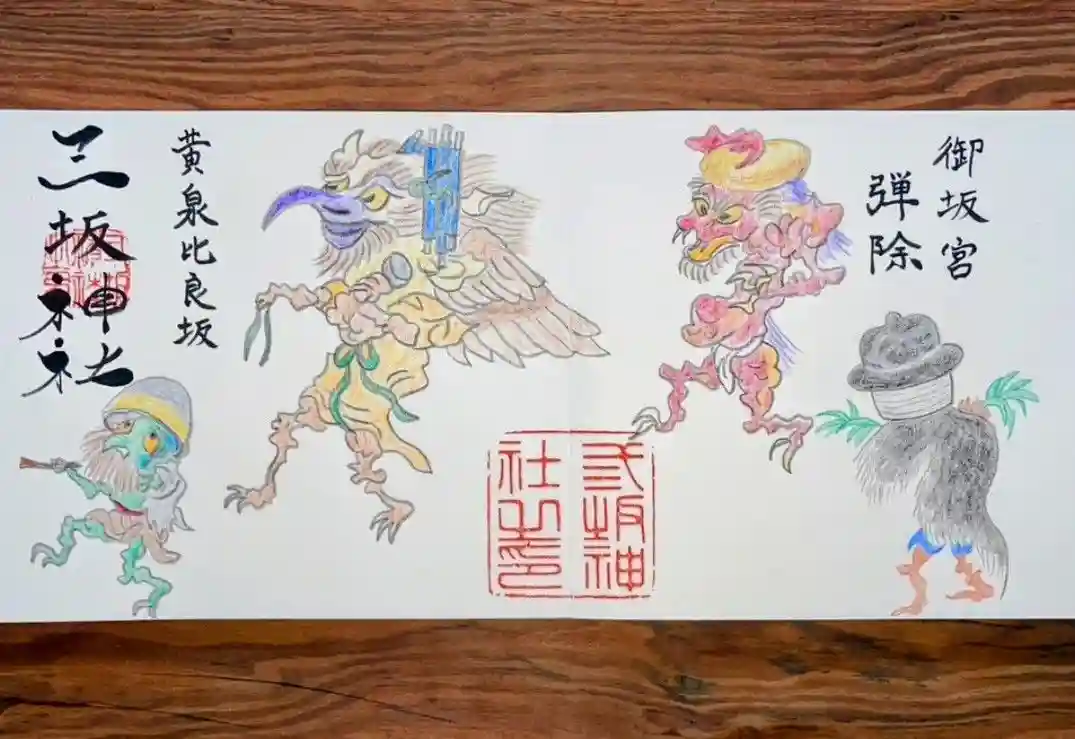 御坂宮
弾除
黄泉比良坂
三坂神社
弎坂神
社之印